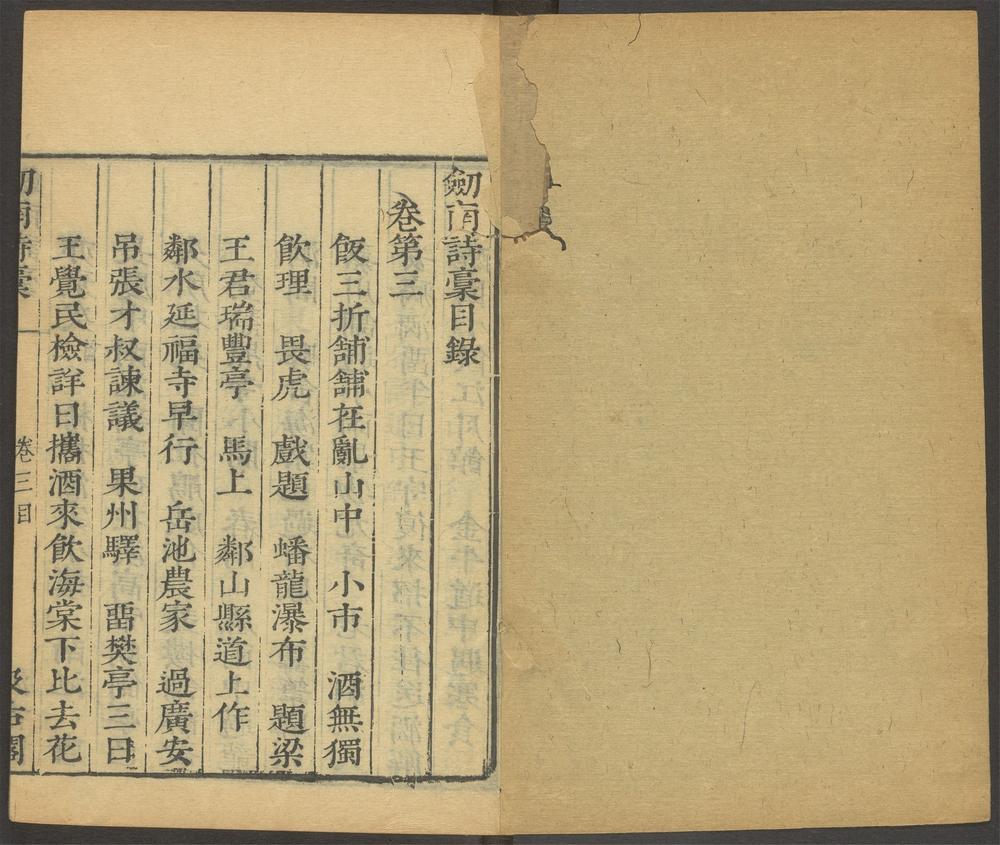 劒南詩稾目錄
卷第三
飯三折舖舖在亂山中 小市 酒無獨
飲理 畏虎 戲題 蟠龍瀑布 題梁
王君瑞豐亭 馬上 鄰山縣道上作
鄰水延福寺早行 岳池農家 過廣安
吊張才叔諫議 果州驛 畱樊亭三日
王覺民檢詳日攜酒來飲海棠下比去花
劒南詩稾 卷三目 汲古閣